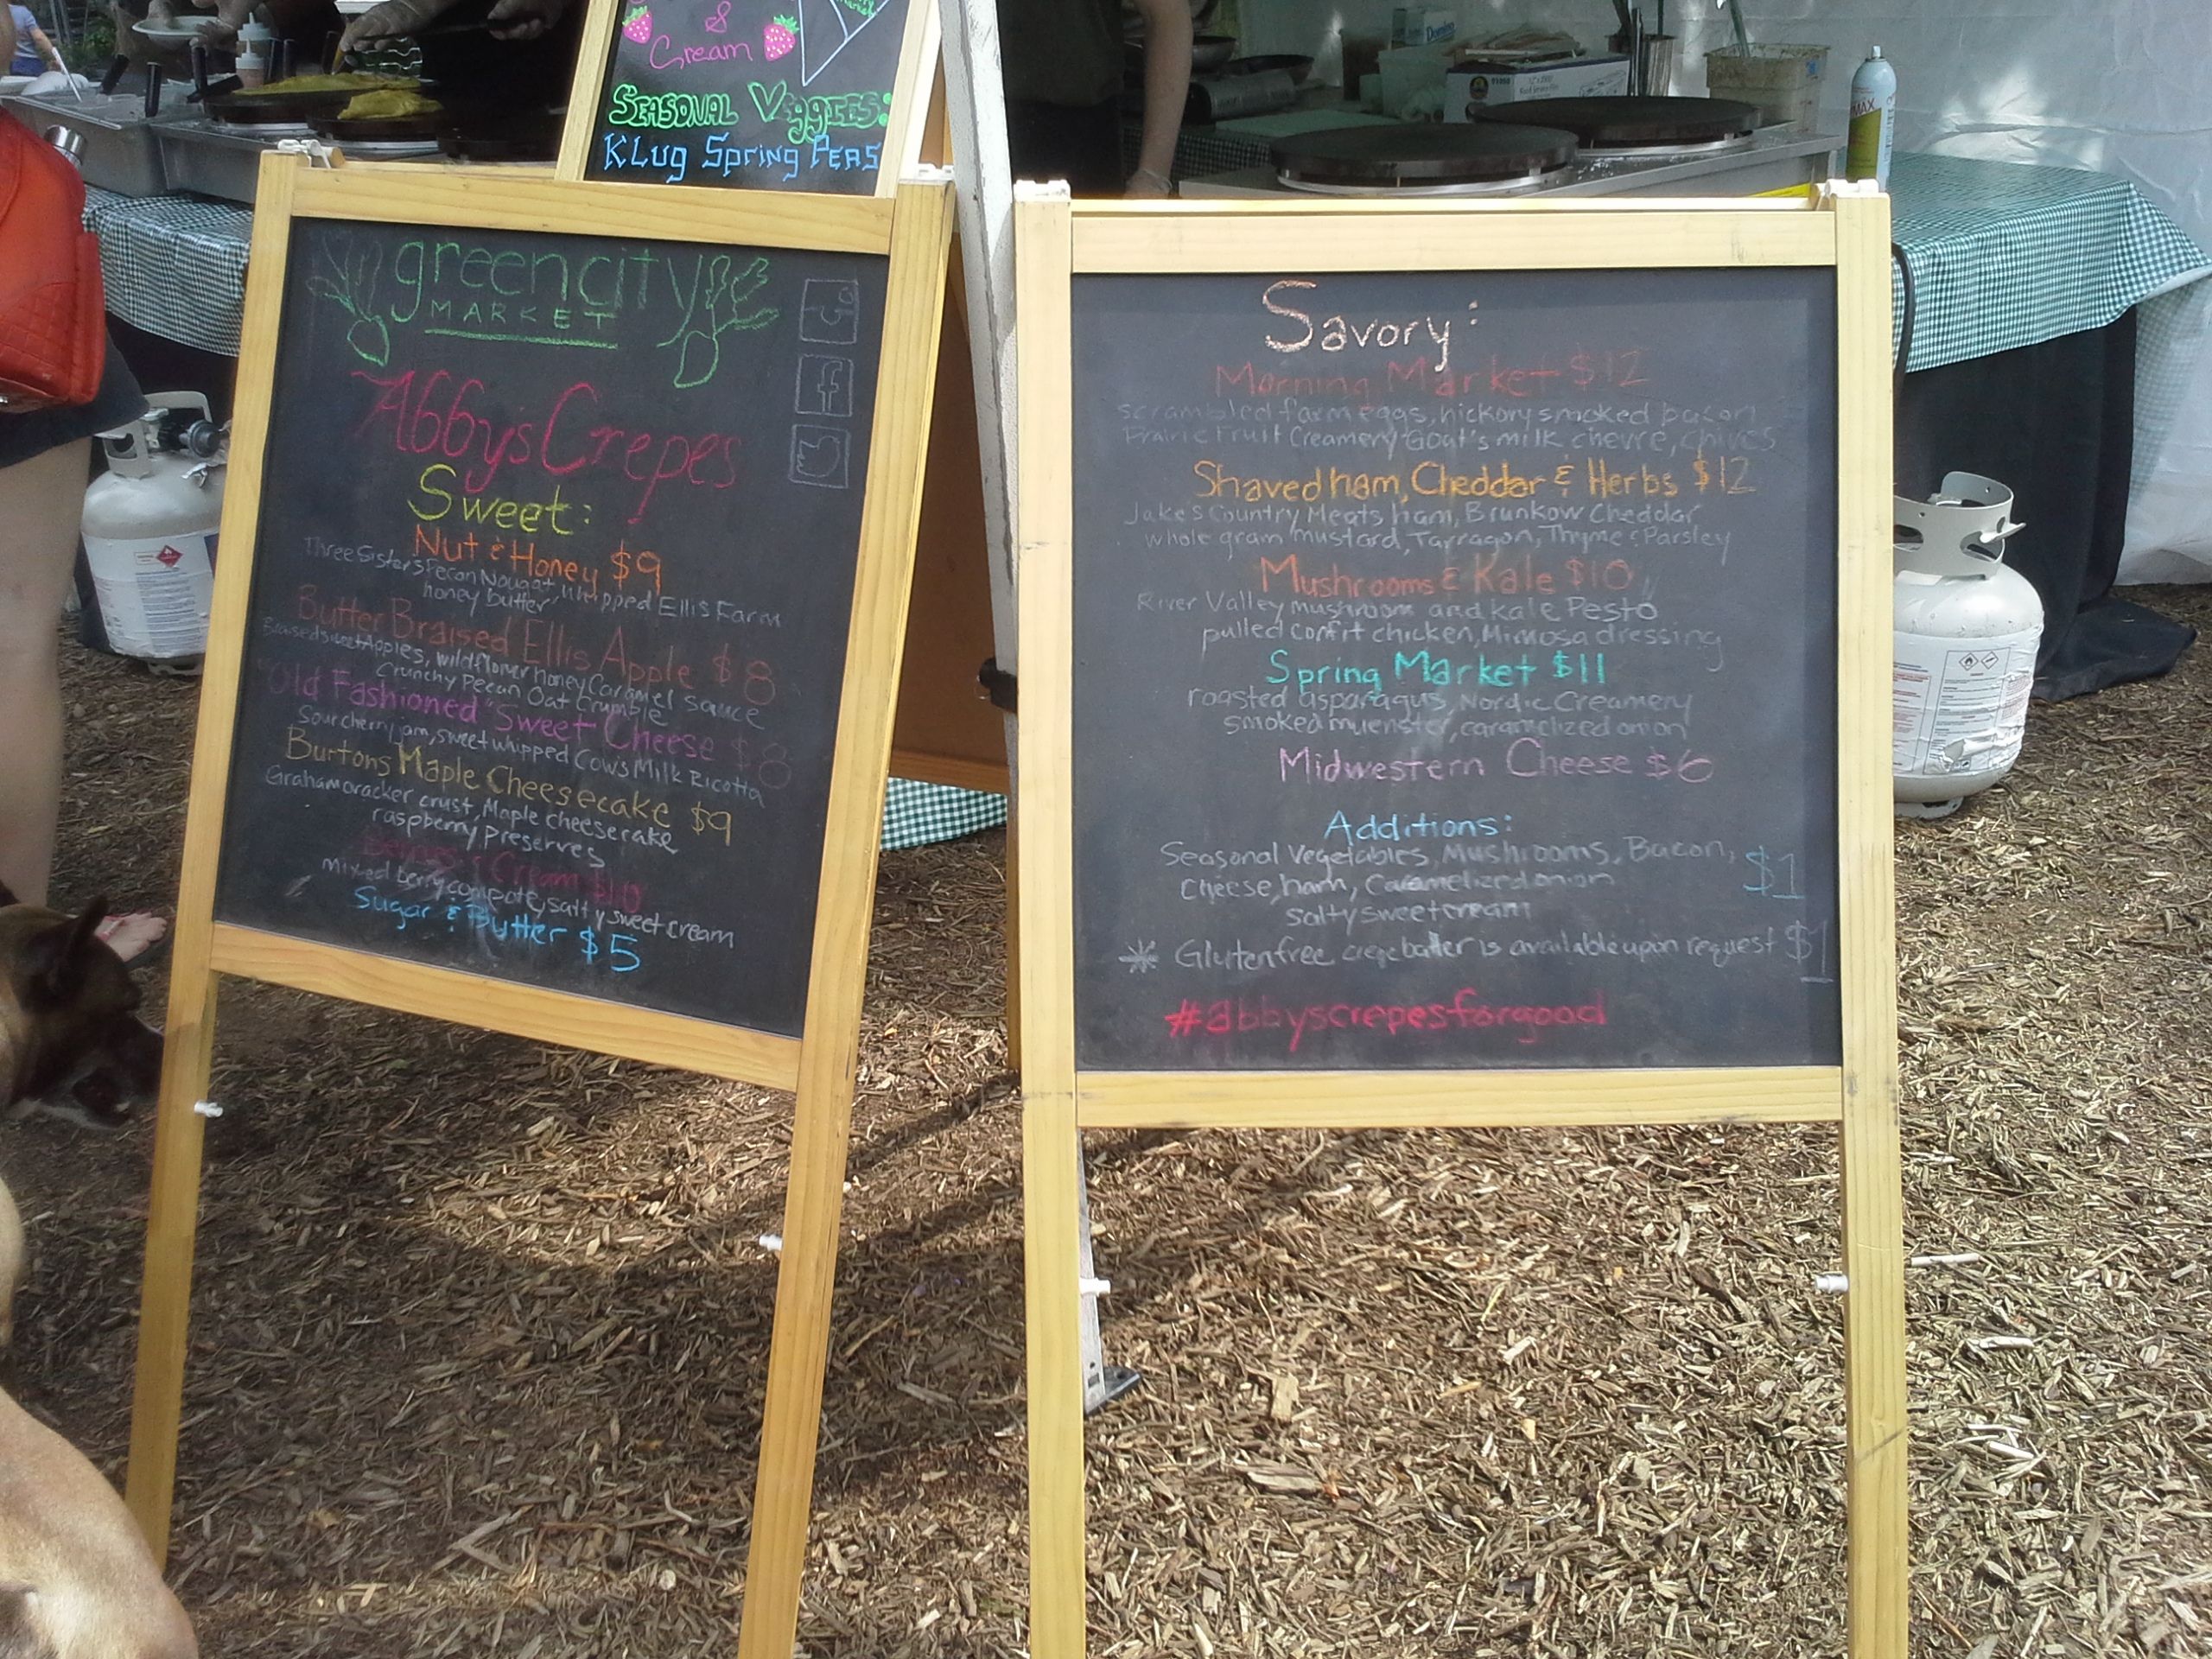 &
Cream
SEASONAL VEGGIES:
KLUG SPRING PEAS
green city
MARKET
Abby's Crepes
Sweet:
Nut & Honey $9
Three Sisters Pecan Nougat, whipped Ellis Farm
honey butter
Butter Braised Ellis Apple $8
Braised sweet Apples, wildflower honey Caramel sauce
Crunchy Pecan Oat Crumble
"Old Fashioned" Sweet Cheese $8
Sour cherry jam, sweet whipped Cow's Milk Ricotta
Burtons Maple Cheesecake $9
Graham cracker crust, Maple cheesecake
raspberry preserves
Cream $10
mixed berry compote, salty sweet cream
Sugar & Butter $5
Savory:
Morning Market $12
scrambled farm eggs, hickory smoked bacon
Prairie Fruit Creamery Goat's milk chevre, chives
Shaved ham, Cheddar & Herbs $12
Jake's Country Meats ham, Brunkow Cheddar
whole grain mustard, Tarragon, Thyme & Parsley
Mushrooms & Kale $10
River Valley mushroom and kale Pesto
pulled confit chicken, Mimosa dressing
Spring Market $11
roasted asparagus, Nordic Creamery
smoked muenster, caramelized onion
Midwestern Cheese $6
Additions:
Seasonal Vegetables, Mushrooms, Bacon, $1
Cheese, ham, Caramelized onion
salty sweet cream
Gluten free crepe batter is available upon request $1
#abbyscrepesforgood
Domino
MAX